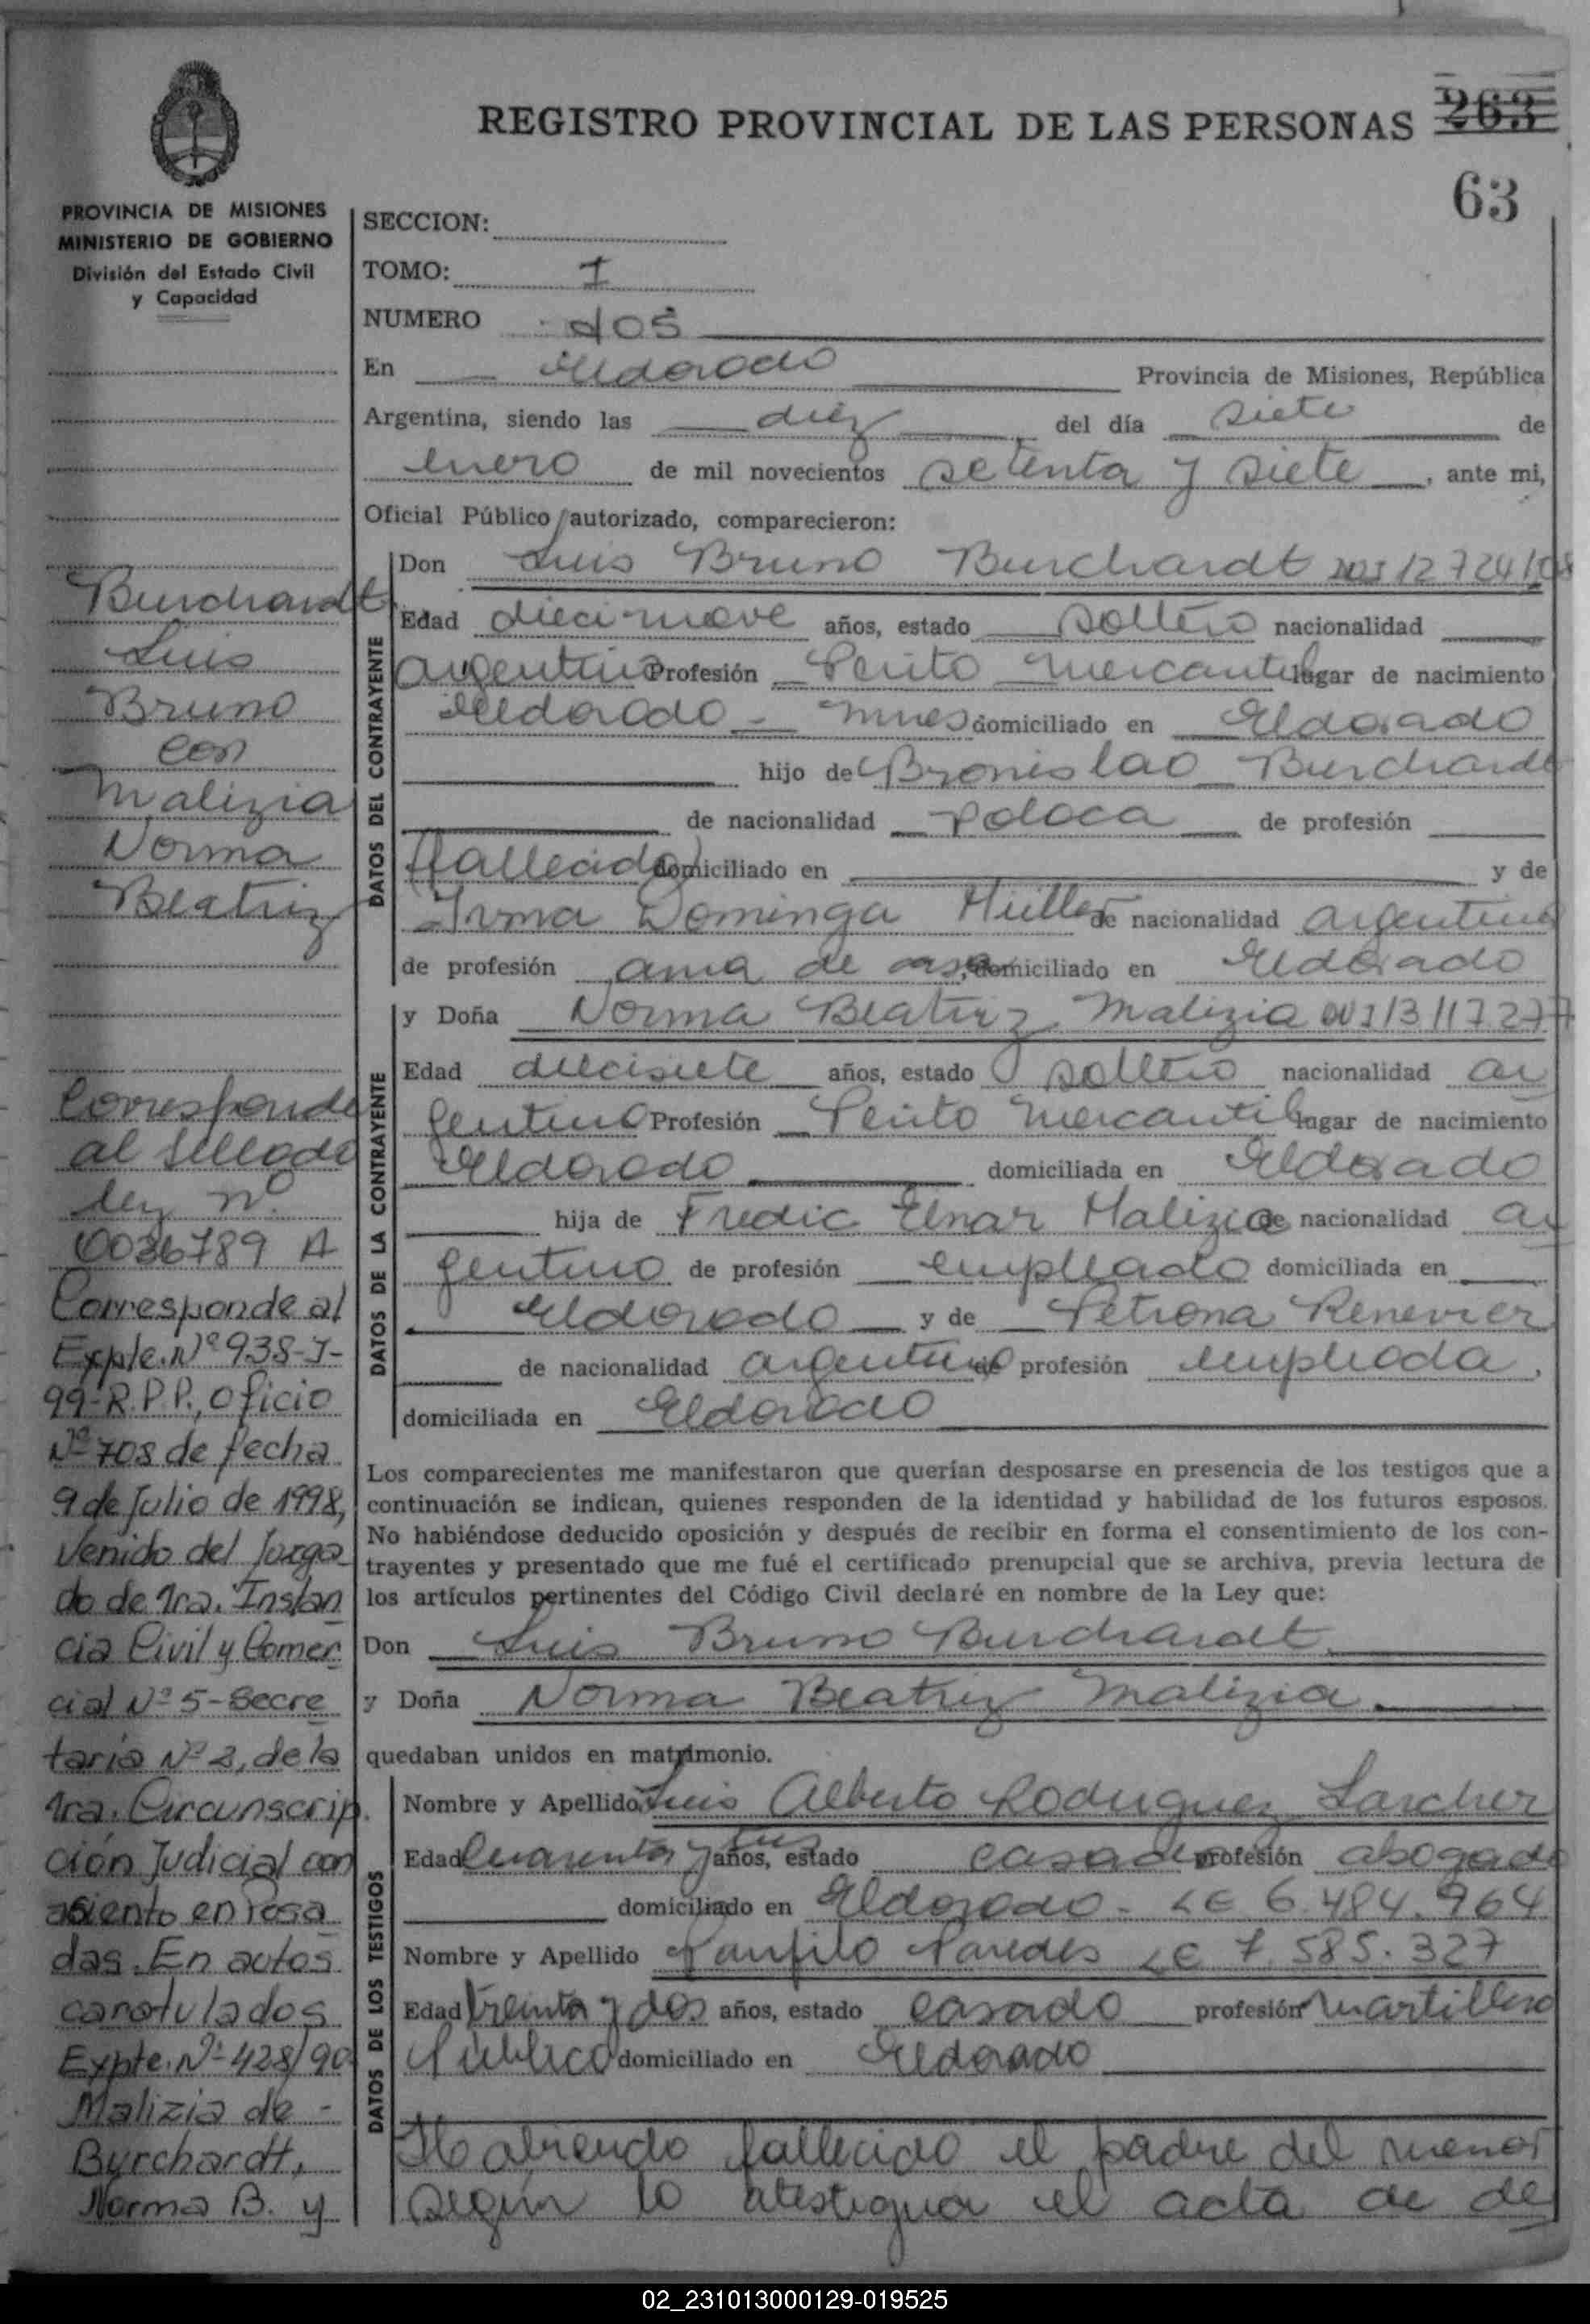 REGISTRO PROVINCIAL DE LAS PERSONAS 263
63
PROVINCIA DE MISIONES
MINISTERIO DE GOBIERNO
División del Estado Civil
y Capacidad
SECCION:
TOMO: I
NUMERO dos
En Eldorado Provincia de Misiones, República
Argentina, siendo las diez del día siete de
enero de mil novecientos setenta y siete, ante mi,
Oficial Público autorizado, comparecieron:
DATOS DEL CONTRAYENTE
Don Luis Bruno Burchardt DNI 12 724 108
Edad diecinueve años, estado soltero nacionalidad
argentino Profesión Perito Mercantil lugar de nacimiento
Eldorado - Mnes domiciliado en Eldorado
hijo de Bronislao Burchardt
de nacionalidad polaca de profesión
(fallecido) domiciliado en y de
Irma Dominga Müller de nacionalidad argentina
de profesión ama de casa, domiciliado en Eldorado
DATOS DE LA CONTRAYENTE
y Doña Norma Beatriz Malizia DNI 13 117 277
Edad diecisiete años, estado soltero nacionalidad ar
gentino Profesión Perito Mercantil lugar de nacimiento
Eldorado domiciliada en Eldorado
hija de Fredic Elnar Malizia de nacionalidad ar
gentino de profesión empleado domiciliada en
Eldorado y de Petrona Renevier
de nacionalidad argentina de profesión empleada,
domiciliada en Eldorado
Los comparecientes me manifestaron que querían desposarse en presencia de los testigos que a
continuación se indican, quienes responden de la identidad y habilidad de los futuros esposos.
No habiéndose deducido oposición y después de recibir en forma el consentimiento de los con-
trayentes y presentado que me fué el certificado prenupcial que se archiva, previa lectura de
los artículos pertinentes del Código Civil declaré en nombre de la Ley que:
Don Luis Bruno Burchardt
y Doña Norma Beatriz Malizia.
quedaban unidos en matrimonio.
DATOS DE LOS TESTIGOS
Nombre y Apellido Luis Alberto Rodriguez Larcher
Edad Cuarenta y tres años, estado casado profesión abogado
domiciliado en Eldorado - LE 6.484.964
Nombre y Apellido Panfilo Paredes LE 7.585.327
Edad treinta y dos años, estado casado profesión Martillero
Público domiciliado en Eldorado
Habiendo fallecido el padre del menor
según lo atestigua el acta de de
Burchardt
Luis
Bruno
con
Malizia
Norma
Beatriz
Corresponde
al sellado
ley nº
0036789 A
Corresponde al
Expte. Nº 938-J-
99-R.P.P., oficio
Nº 708 de fecha
9 de Julio de 1998,
Venido del Juzga
do de 1ra. Instan
cia Civil y Comer
cial Nº 5 - Secre
taría Nº 2, de la
1ra. Circunscrip.
ción Judicial con
asiento en Posa
das. En autos
caratulados
Expte. Nº 428/90
Malizia de -
Burchardt,
Norma B. y
02_231013000129-019525